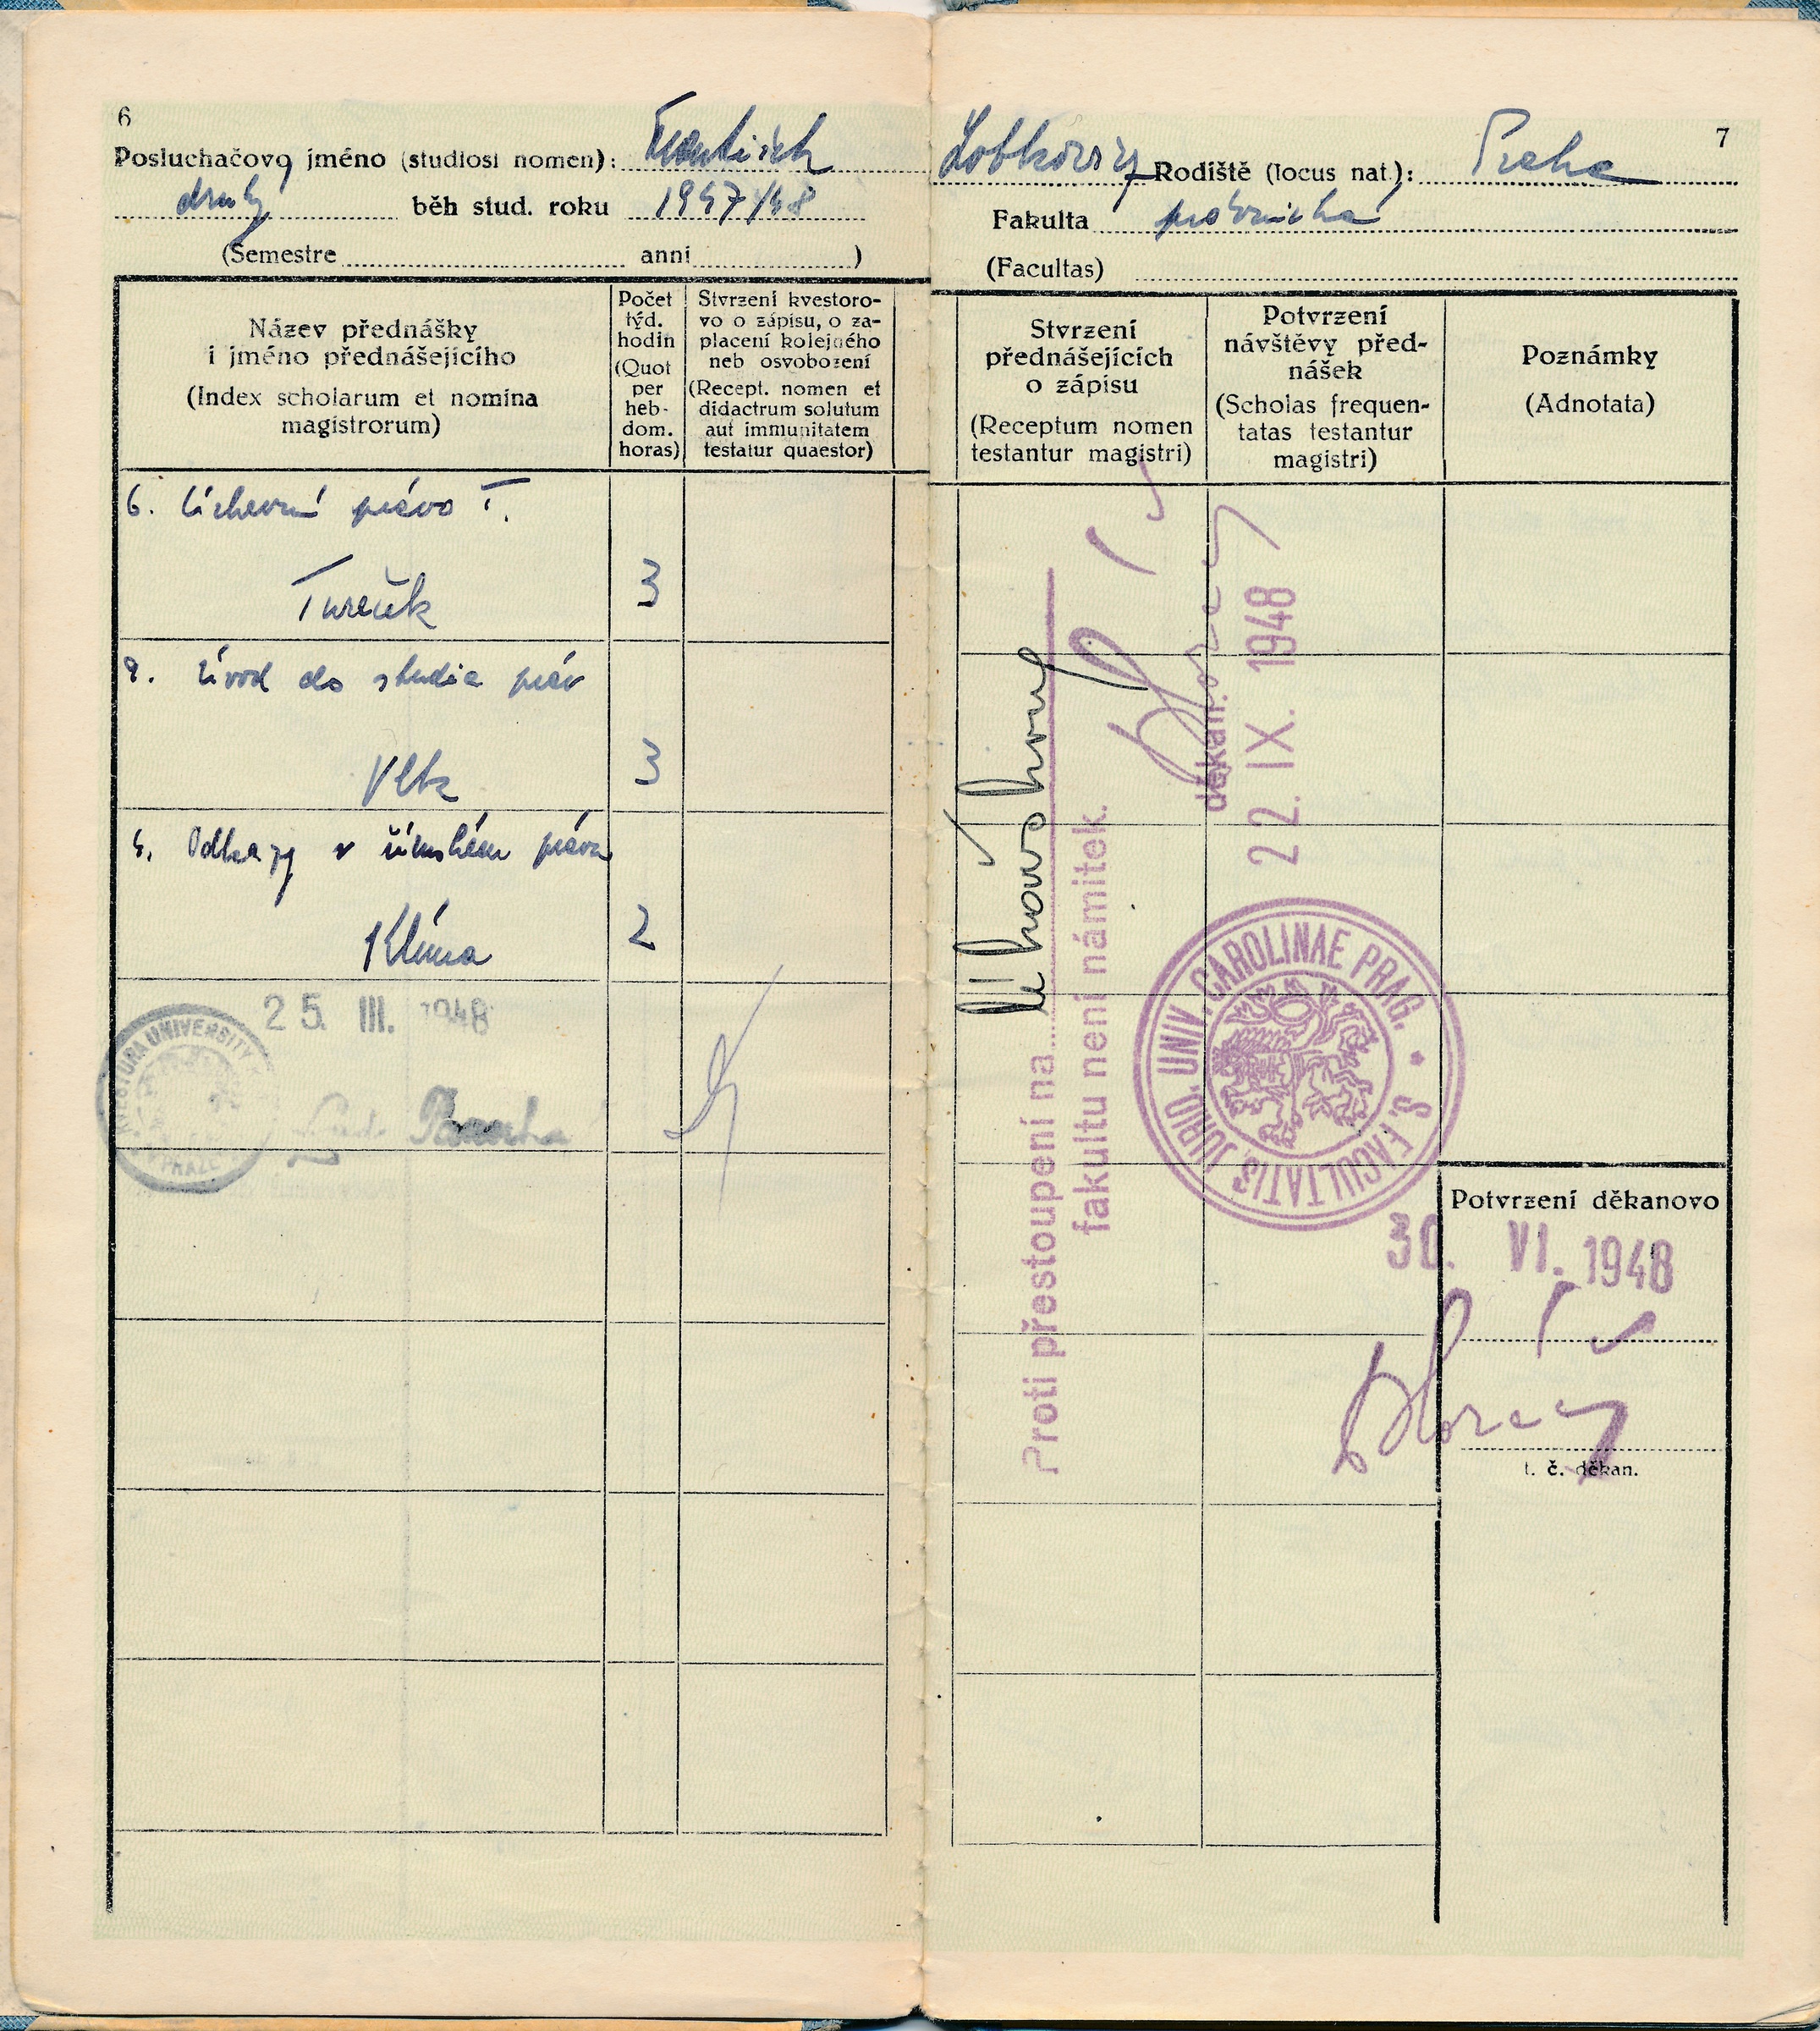 6
Posluchačovo jméno (studiosi nomen): František
druhý běh stud. roku 1947/48
(Semestre anni )
Název přednášky
i jméno přednášejícího
(Index scholarum et nomina
magistrorum)
Počet
týd.
hodin
(Quot
per
heb-
dom.
horas)
Stvrzení kvestoro-
vo o zápisu, o za-
placení kolejného
neb osvobození
(Recept. nomen et
didactrum solutum
aut immunitatem
testatur quaestor)
6. Církevní právo I.
Tureček 3
Úvod do studia práv
Vlk 3
Odkazy v římském právu
Klíma 2
25. III. 1948
UNIVERSITY
7
Lobkowicz Rodiště (locus nat.): Praha
Fakulta právnická
(Facultas)
Stvrzení
přednášejících
o zápisu
(Receptum nomen
testantur magistri)
Potvrzení
návštěvy před-
nášek
(Scholas frequen-
tatas testantur
magistri)
Poznámky
(Adnotata)
Proti přestoupení na lékařskou
fakultu není námitek.
děkan.
22. IX. 1948
S. FACULTATIS JURID. UNIV. CAROLINAE PRAG.
Potvrzení děkanovo
30. VI. 1948
t. č. děkan.